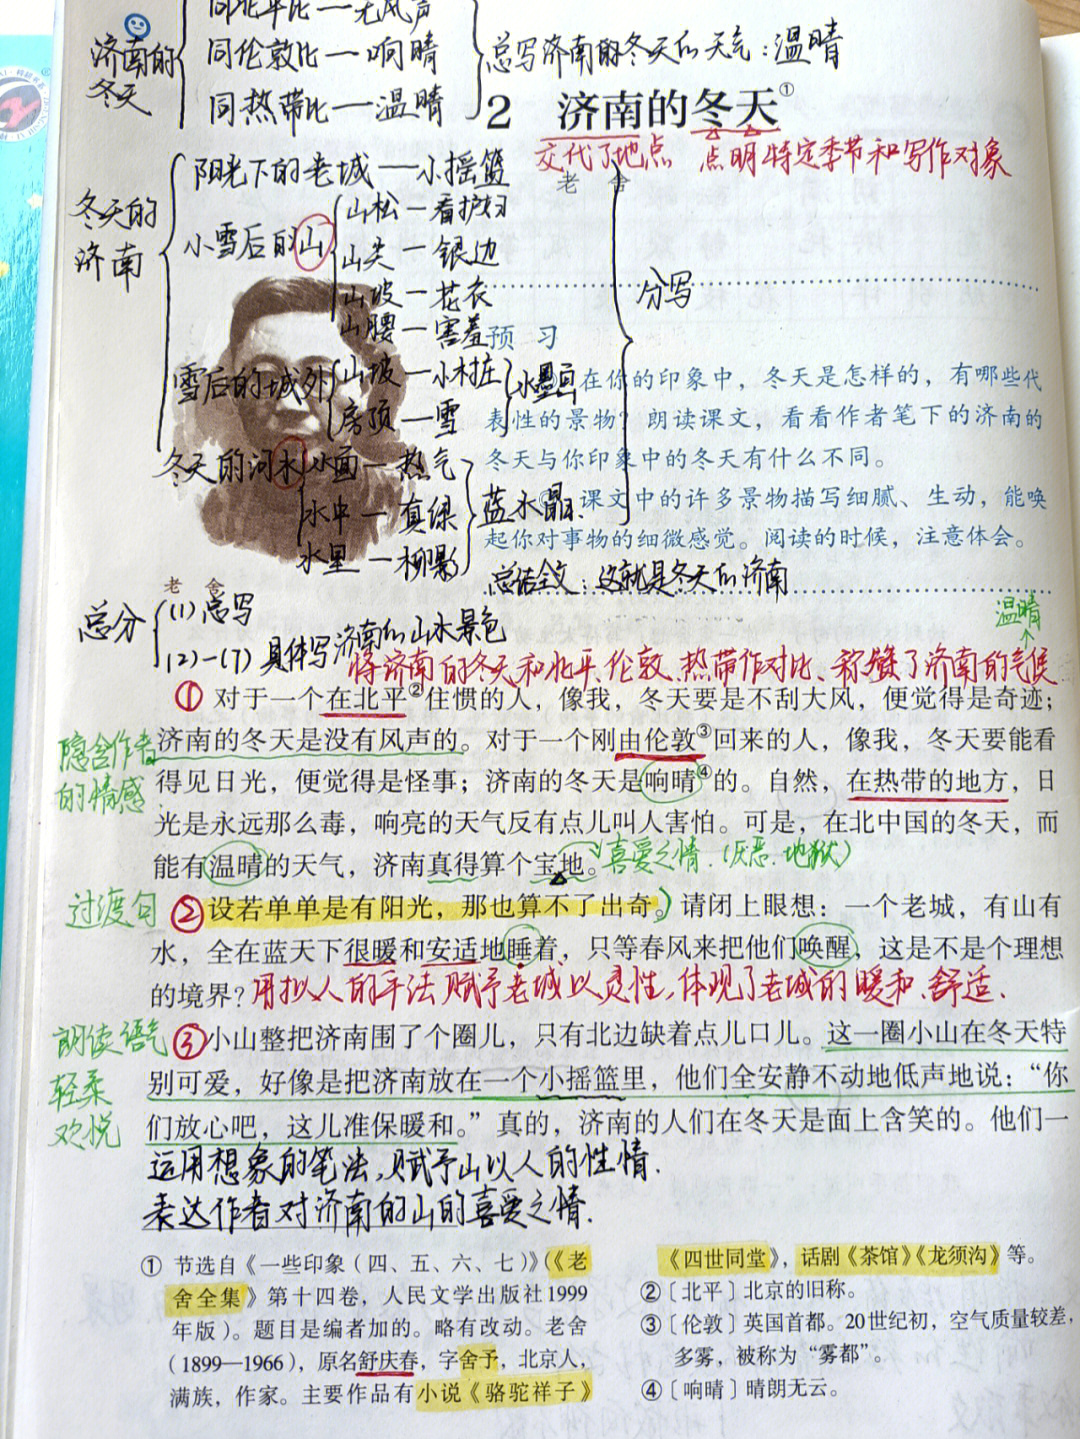 同北平比—无风声
济南的
冬天
同伦敦比—响晴
同热带比—温晴
总写济南的冬天的天气：温晴
2 济南的冬天①
交代了地点 点明特定季节和写作对象
老 舍
冬天的
济南
阳光下的老城—小摇篮
小雪后的山
山松—看护妇
山尖—银边
山坡—花衣
山腰—害羞
分写
雪后的城外
山坡—小村庄
房顶—雪
水墨画
冬天的河水
水面—热气
水中—真绿
水里—柳影
蓝水晶
预 习
在你的印象中，冬天是怎样的，有哪些代
表性的景物？朗读课文，看看作者笔下的济南的
冬天与你印象中的冬天有什么不同。
课文中的许多景物描写细腻、生动，能唤
起你对事物的细微感觉。阅读的时候，注意体会。
总结全文：这就是冬天的济南
老 舍
总分
(1) 总写
(2)—(7) 具体写济南的山水景色
温晴
将济南的冬天和北平、伦敦、热带作对比、称赞了济南的气候
① 对于一个在北平②住惯的人，像我，冬天要是不刮大风，便觉得是奇迹；
隐含作者
的情感
济南的冬天是没有风声的。对于一个刚由伦敦③回来的人，像我，冬天要能看
得见日光，便觉得是怪事；济南的冬天是响晴④的。自然，在热带的地方，日
光是永远那么毒，响亮的天气反有点儿叫人害怕。可是，在北中国的冬天，而
能有温晴的天气，济南真得算个宝地。
喜爱之情.（厌恶.地狱）
过渡句
② 设若单单是有阳光，那也算不了出奇。请闭上眼想：一个老城，有山有
水，全在蓝天下很暖和安适地睡着，只等春风来把他们唤醒，这是不是个理想
的境界？
用拟人的手法,赋予老城以灵性,体现了老城的暖和.舒适.
朗读语气
轻柔
欢悦
③ 小山整把济南围了个圈儿，只有北边缺着点儿口儿。这一圈小山在冬天特
别可爱，好像是把济南放在一个小摇篮里，他们全安静不动地低声地说：“你
们放心吧，这儿准保暖和。”真的，济南的人们在冬天是面上含笑的。他们一
运用想象的笔法,赋予山以人的性情.
表达作者对济南的山的喜爱之情.
① 节选自《一些印象（四、五、六、七）》（《老
舍全集》第十四卷，人民文学出版社1999
年版）。题目是编者加的。略有改动。老舍
（1899—1966），原名舒庆春，字舍予，北京人，
满族，作家。主要作品有小说《骆驼祥子》
《四世同堂》，话剧《茶馆》《龙须沟》等。
②〔北平〕北京的旧称。
③〔伦敦〕英国首都。20世纪初，空气质量较差，
多雾，被称为“雾都”。
④〔响晴〕晴朗无云。